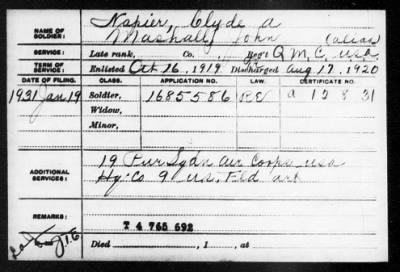 NAME OF SOLDIER: Napier, Clyde A
Mashall, John (alias)
SERVICE: Late rank, Co. Reg't Q.M.C. usa
TERM OF SERVICE: Enlisted Oct 16, 1919 Discharged Aug 17, 1920
DATE OF FILING. CLASS. APPLICATION NO. LAW. CERTIFICATE NO.
1931 Jan 19 Soldier, 1685586 a 12 8 31
Widow,
Minor,
ADDITIONAL SERVICES: 19 Pur Sqdn Air Corps usa
Hq. Co 9 us. Fld art
REMARKS: T 4 765 692
Died , 1 , at